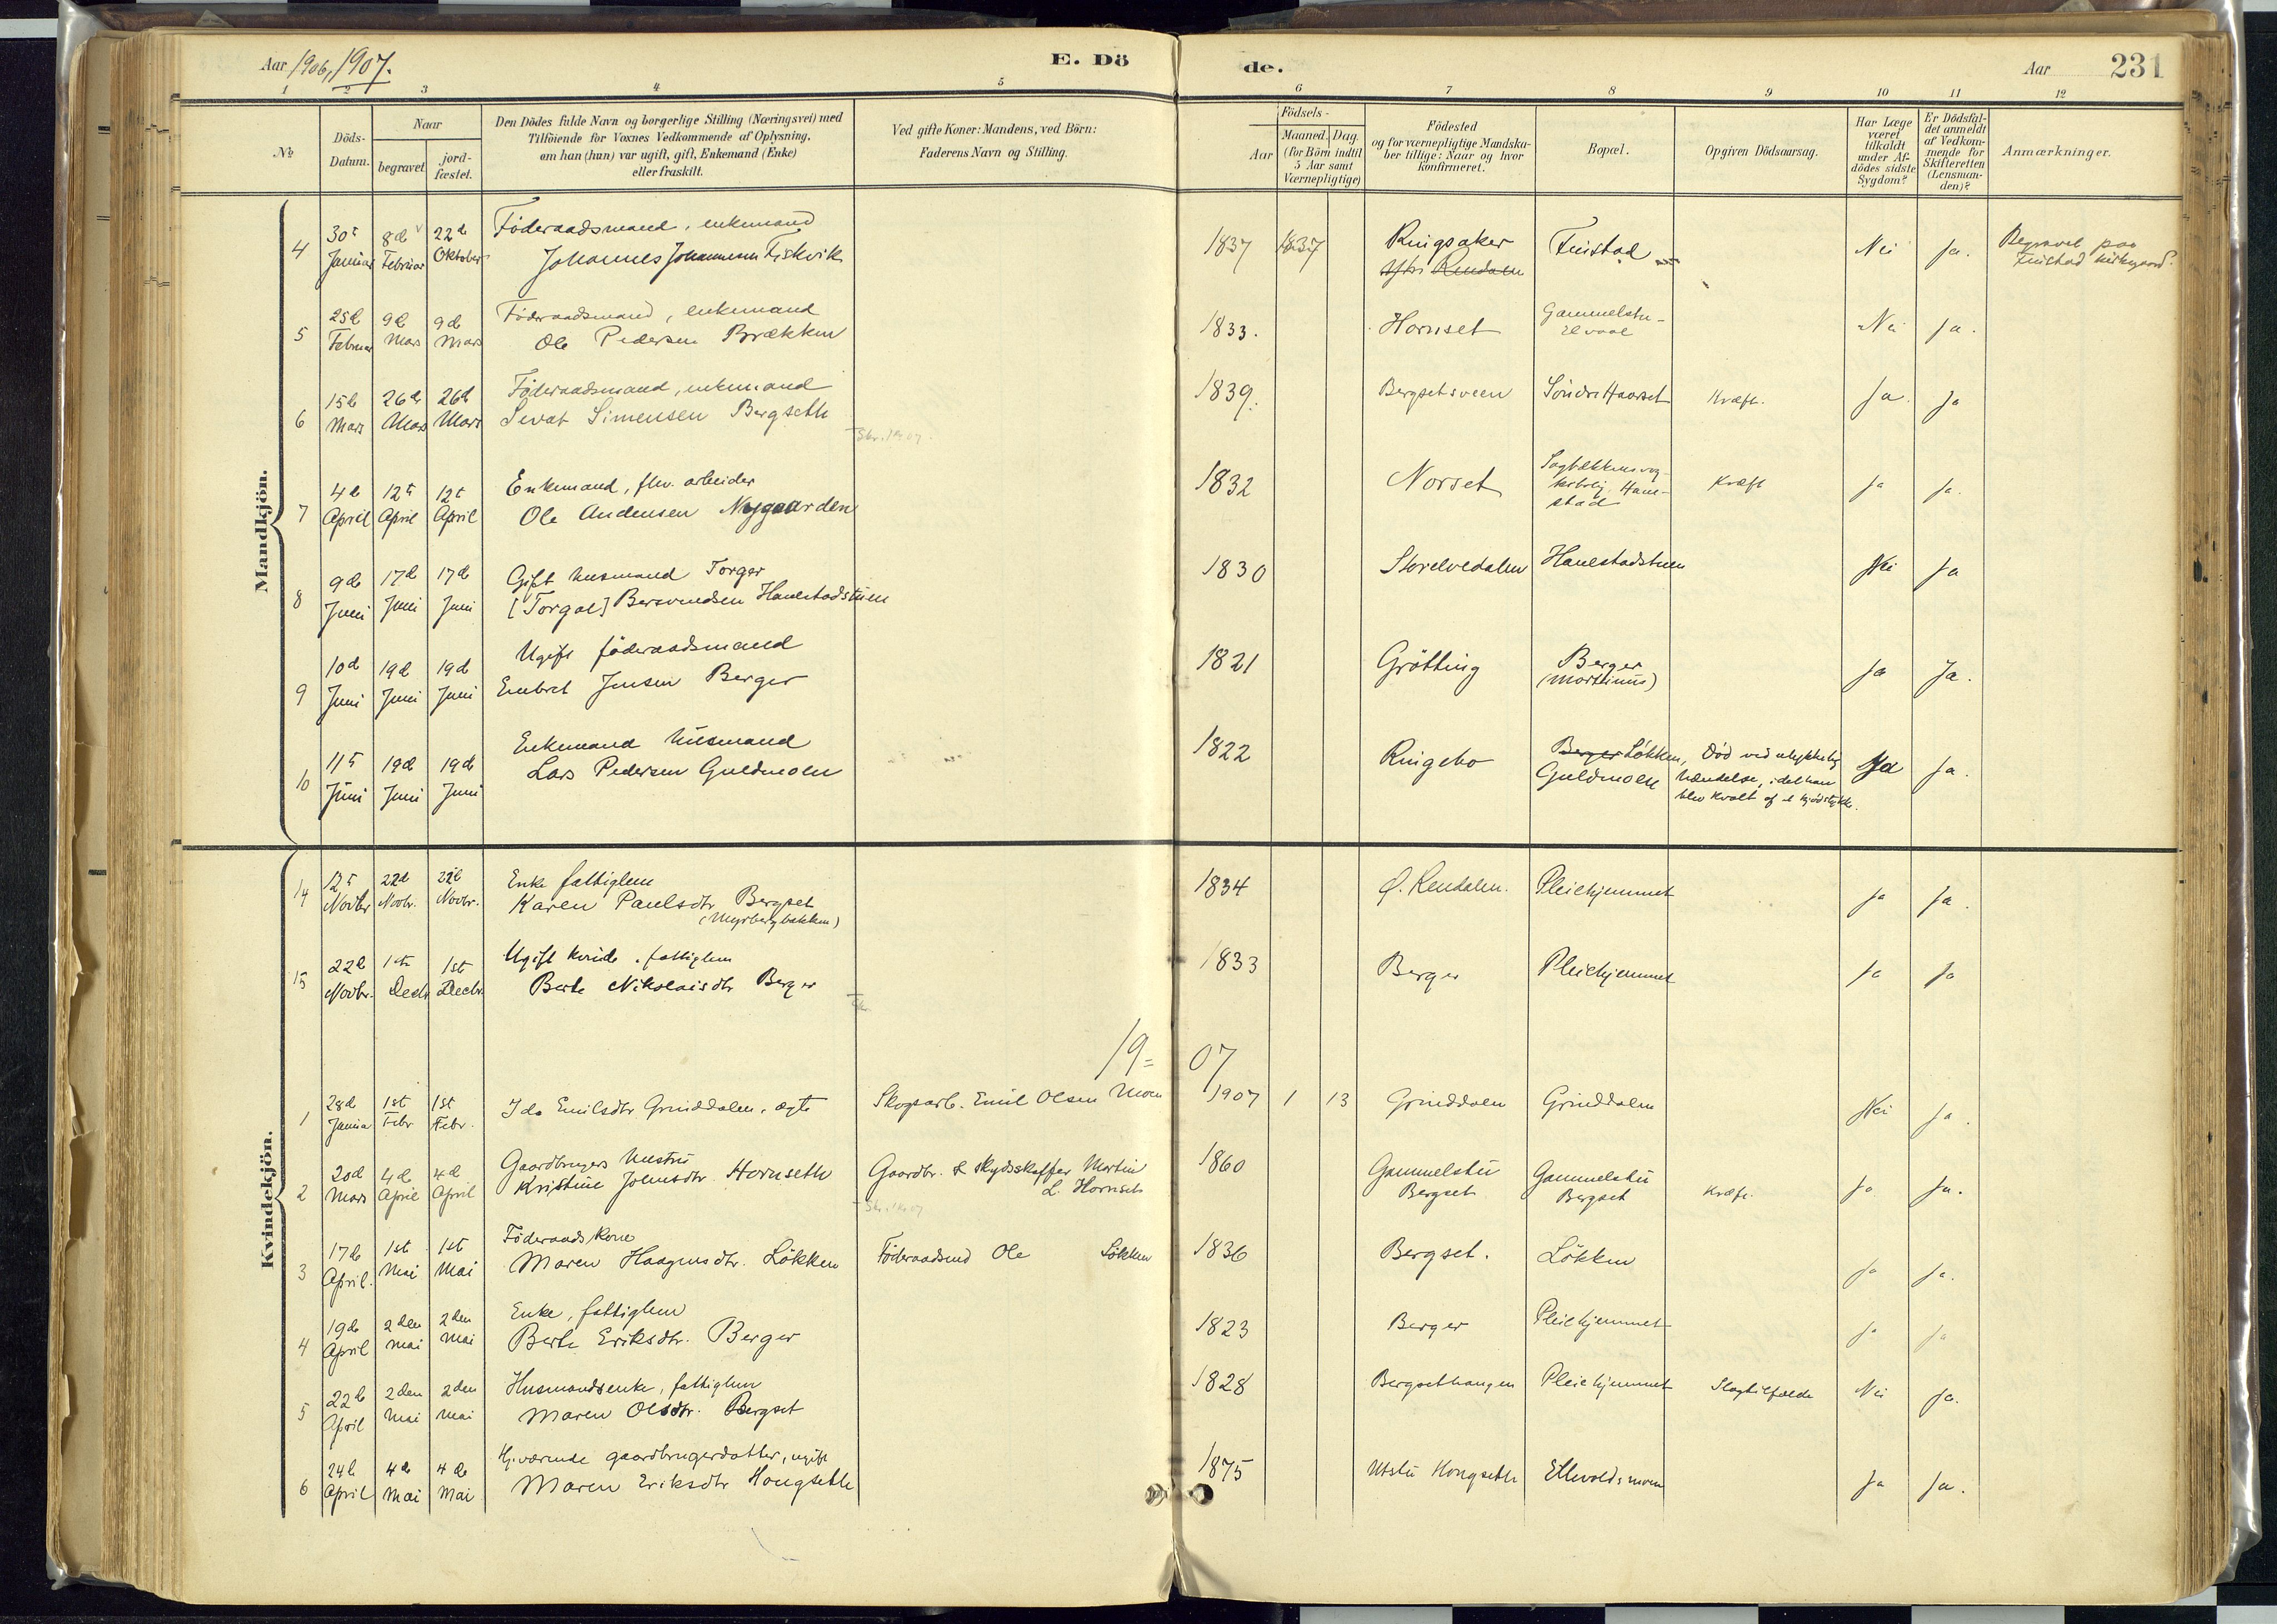 Aar 1906, 1907.
E. Dö
de.
Aar
231
1 2 3 4 5 6 7 8 9 10 11 12
№
Döds-
Datum.
Naar
begravet
jord-
fæstet.
Den Dödes fulde Navn og borgerlige Stilling (Næringsvei) med
Tilföiende for Voxnes Vedkommende af Oplysning,
om han (hun) var ugift, gift, Enkemand (Enke)
eller fraskilt.
Ved gifte Koner: Mandens, ved Börn:
Faderens Navn og Stilling.
Födsels-
Aar
Maaned. Dag.
(for Börn indtil
5 Aar samt
Værnepligtige)
Födested
og for værnepligtige Mandska-
ber tillige: Naar og hvor
konfirmeret.
Bopæl.
Opgiven Dödsaarsag.
Har Læge
været
tilkaldt
under Af-
dödes sidste
Sygdom?
Er Dödsfal-
det anmeldt
af Vedkom-
mende for
Skifteretten
(Lensman-
den)?
Anmærkninger.
Mandkjön.
4 30t Januar 8d Februar 22d Oktober
Föderaadsmand, enkemand
Johannes Johannesen Fiskvik
1837 1837 Ringsaker
Ytri Rendalen
Finstad Nei ja.
Begravet paa
Finstad kirkegaard.
5 25d Februar 9d Mars 9d Mars
Föderaadsmand, enkemand
Ole Pedersen Brækken
1833. Hornset
Gammelstu-
Elvaal
Nei ja.
6 15d Mars 26d Mars 26d Mars
Föderaadsmand, enkemand
Sevat Simensen Bergseth
Skr. 1907.
1839. Bergsetsveen Söndre Haarset Kræft. ja. ja
7 4d April 12t April 12t April
Enkemand, flv. arbeider
Ole Andersen Nygaarden
1832 Norset
Hane-
stad
Kræft ja ja.
8 9d Juni 17d Juni 17d Juni
Gift husmand Torger
[Torgal] Bersvendsen Hanestadstuen
1830 Storelvedalen Hanestadstuen Nei ja
9 10d Juni 19d Juni 19d Juni
Ugift föderaadsmand
Embret Jensen Berger
1821 Grötting Berger
(Martinus)
ja ja.
10 11t Juni 19d Juni 19d Juni
Enkemand husmand
Lars Pedersen Guldmoen
1822 Ringebo
Berger Lökken,
Guldmoen
Död ved ulykkelig
hændelse, idet han
blev kvalt af et kjödstykke.
Ja ja.
Kvindekjön.
14 12t Novbr 22d Novbr. 22d Novbr.
Enke fattiglem
Karen Paulsdtr Bergset
(Myrbergbakken)
1834 Ö. Rendalen. Pleiehjemmet ja ja.
15 22d Novbr. 1st Decbr 1st Decbr.
Ugift kvinde. fattiglem
Berte Nikolaisdtr Berger
1833 Berger Pleiehjemmet ja ja
19=07
1 28d Janua 1st Febr 1st Febr.
Ida Emilsdtr Grinddalen. ægte
Skogsarb. Emil Olsen Moen
1907 1 13 Grinddalen Grinddalen Nei ja.
2 20d Mars 4d April 4d April
Gaardbrugers hustru
Kristine Johnsdtr. Hornseth
Gaardbr. & skydsskaffer Martin
L. Hornseth
Skr. 1907
1860 Gammelstu
Bergset
Gammelstu
Bergset
Kræft. ja ja.
3 17d April. 1st Mai 1st Mai
Föderaadskone
Maren Haagensdtr. Lökken
Föderaadsmd Ole Lökken
1836 Bergset. Lökken ja ja.
4 19d April 2den mai 2den mai
Enke, fattiglem
Berte Eriksdtr. Berger
1823 Berger Pleiehjemmet ja ja
5 22d April 2den mai 2den mai
Husmandsenke, fattiglem
Maren Olsdtr. Bergset
1828 Bergsethaugen Pleiehjemmet Slagtilfælde Nei ja.
6 24d April 4de mai 4de mai
Hj.værende gaardbrugerdatter, ugift
Maren Eriksdtr Hongseth
1875 Utstu Hongseth Ellevoldsmoen ja ja.